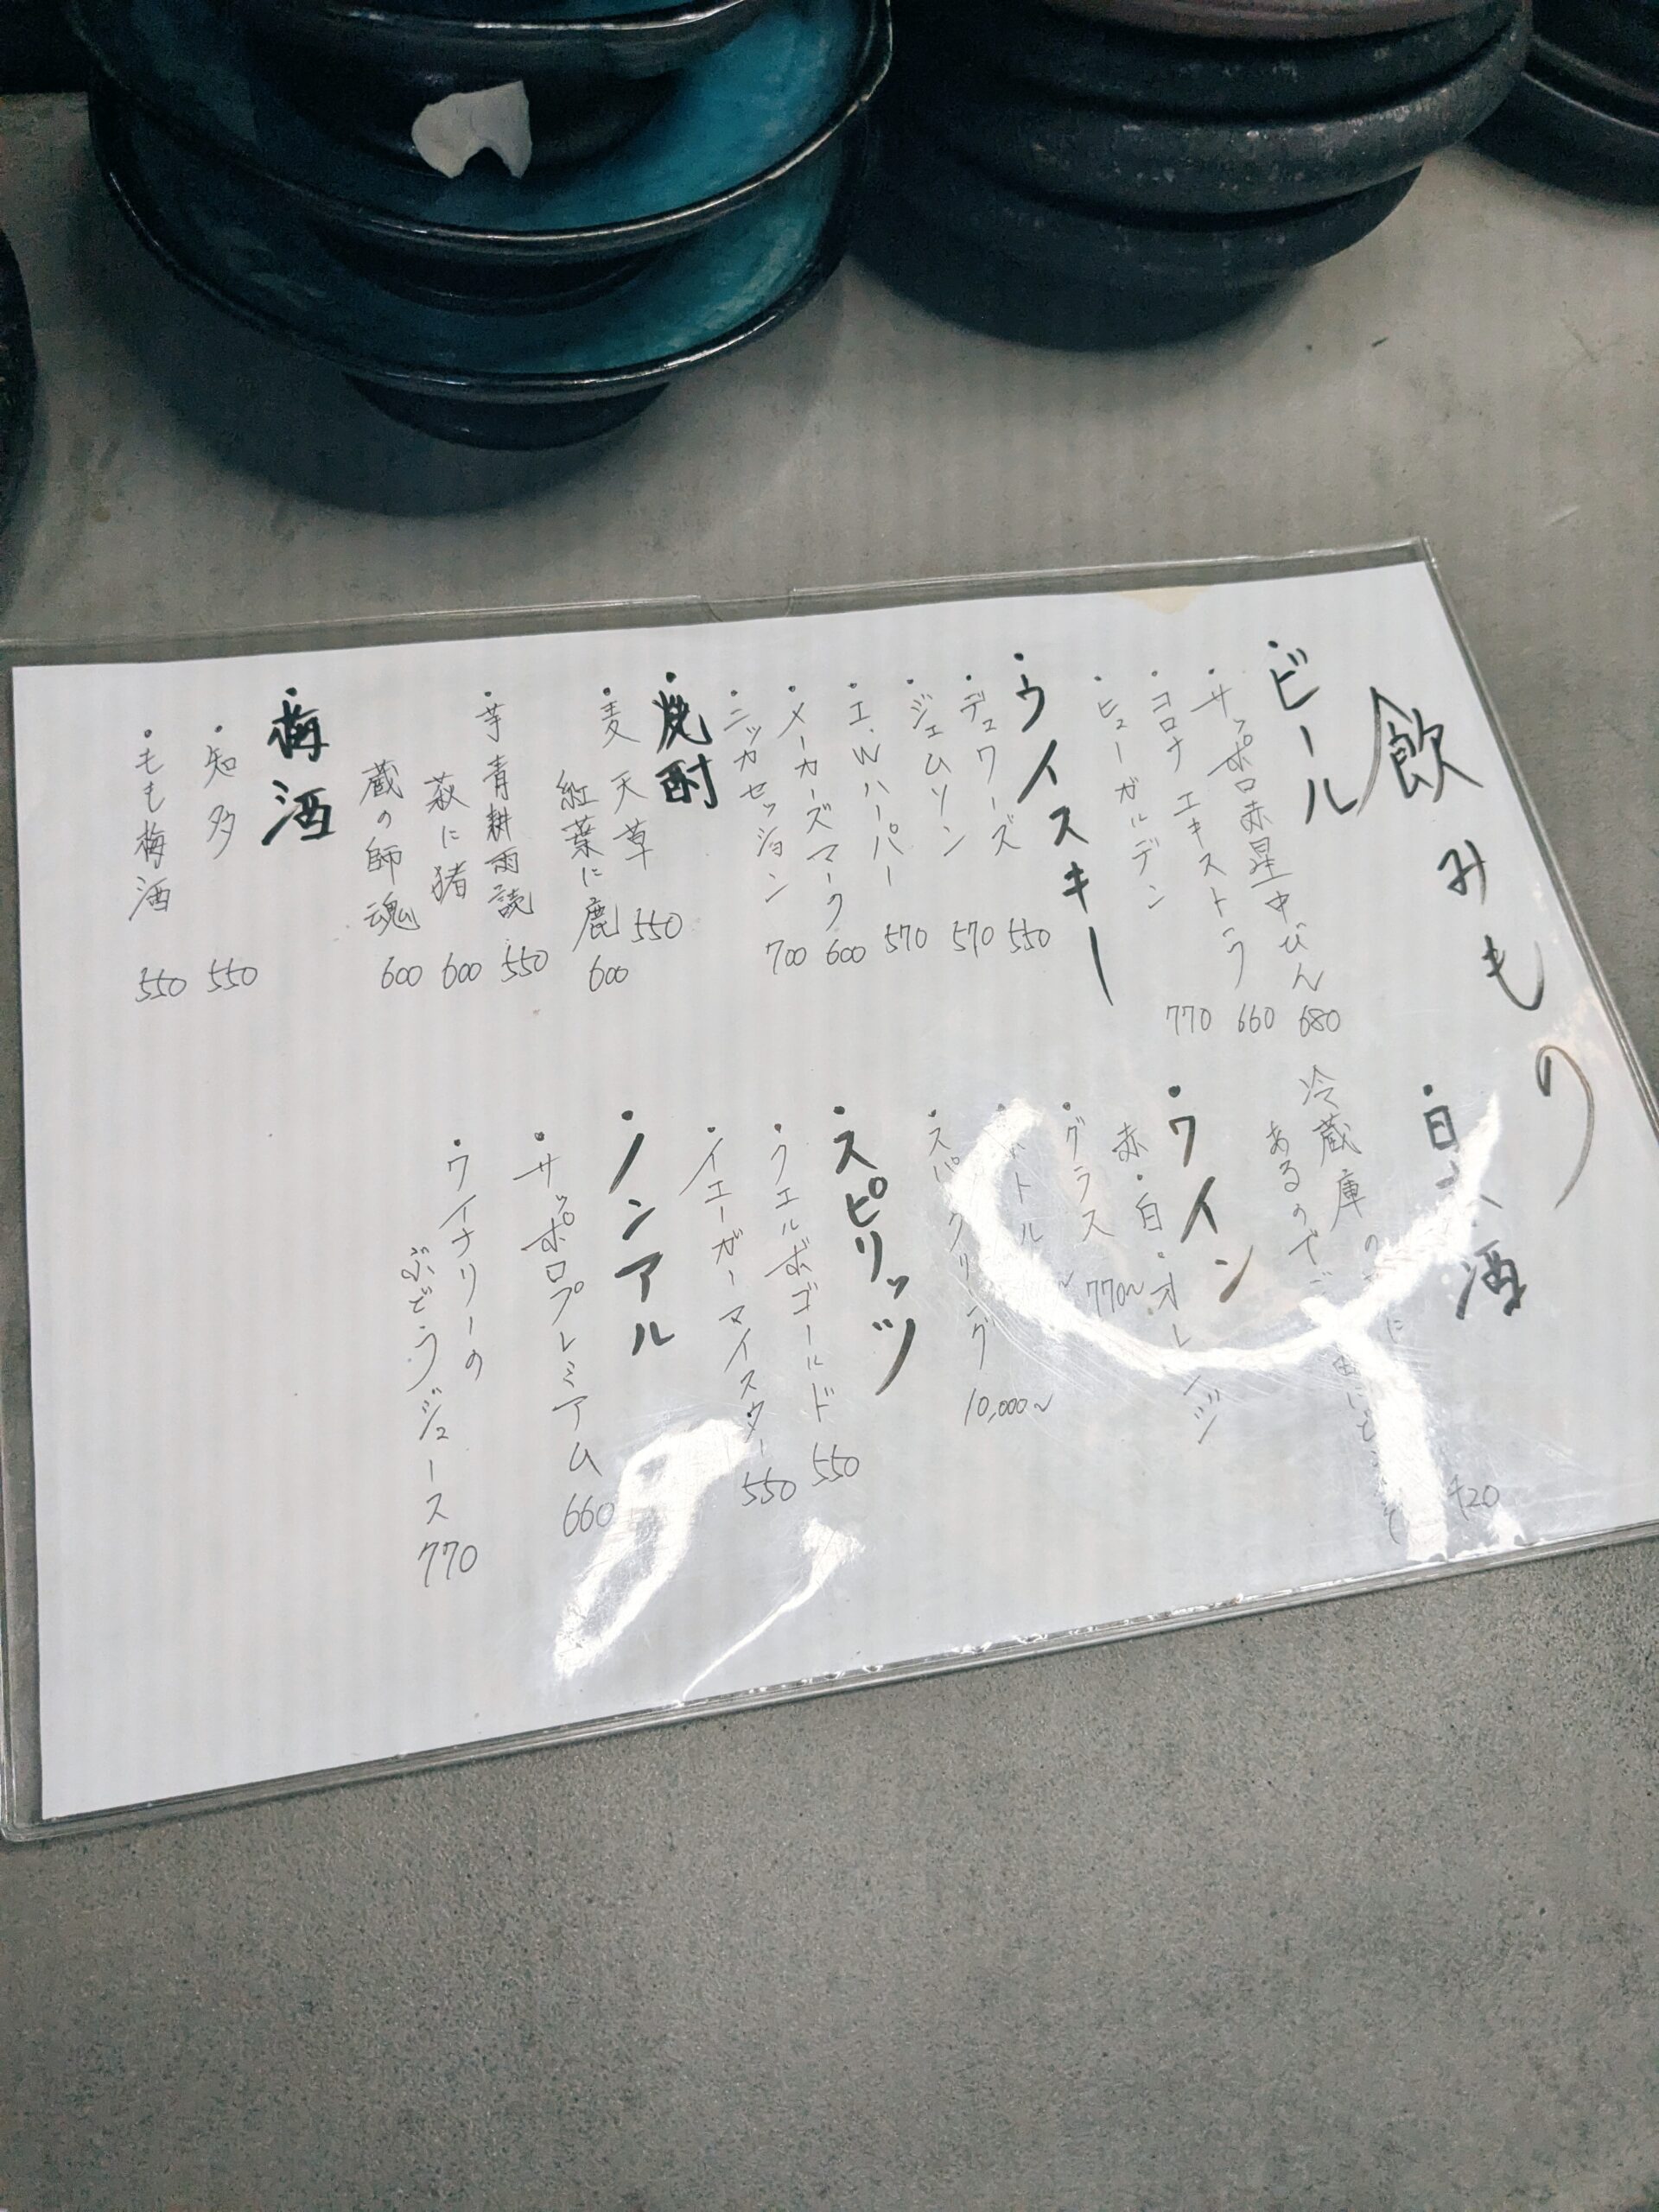 飲みもの
・ビール
・サッポロ赤星中びん 680
・コロナ エキストラ 660
・ヒューガルデン 770
・ウイスキー
・デュワーズ 550
・ジェムソン 570
・I.Wハーパー 570
・メーカーズマーク 600
・ニッカセッション 700
・焼酎
・麦 天草 550
紅葉に鹿 600
・芋 青耕雨読 550
萩に猪 600
蔵の師魂 600
・梅酒
・知多 550
・もも梅酒 550
・日本酒
720
冷蔵庫の
あるので
・ワイン
赤・白・オレンジ
・グラス 770〜
・ボトル
・スパークリング 10,000〜
・スピリッツ
・クエルボゴールド 550
・イエーガーマイスター 550
・ノンアル
・サッポロプレミアム 660
・ワイナリーの
ぶどうジュース 770